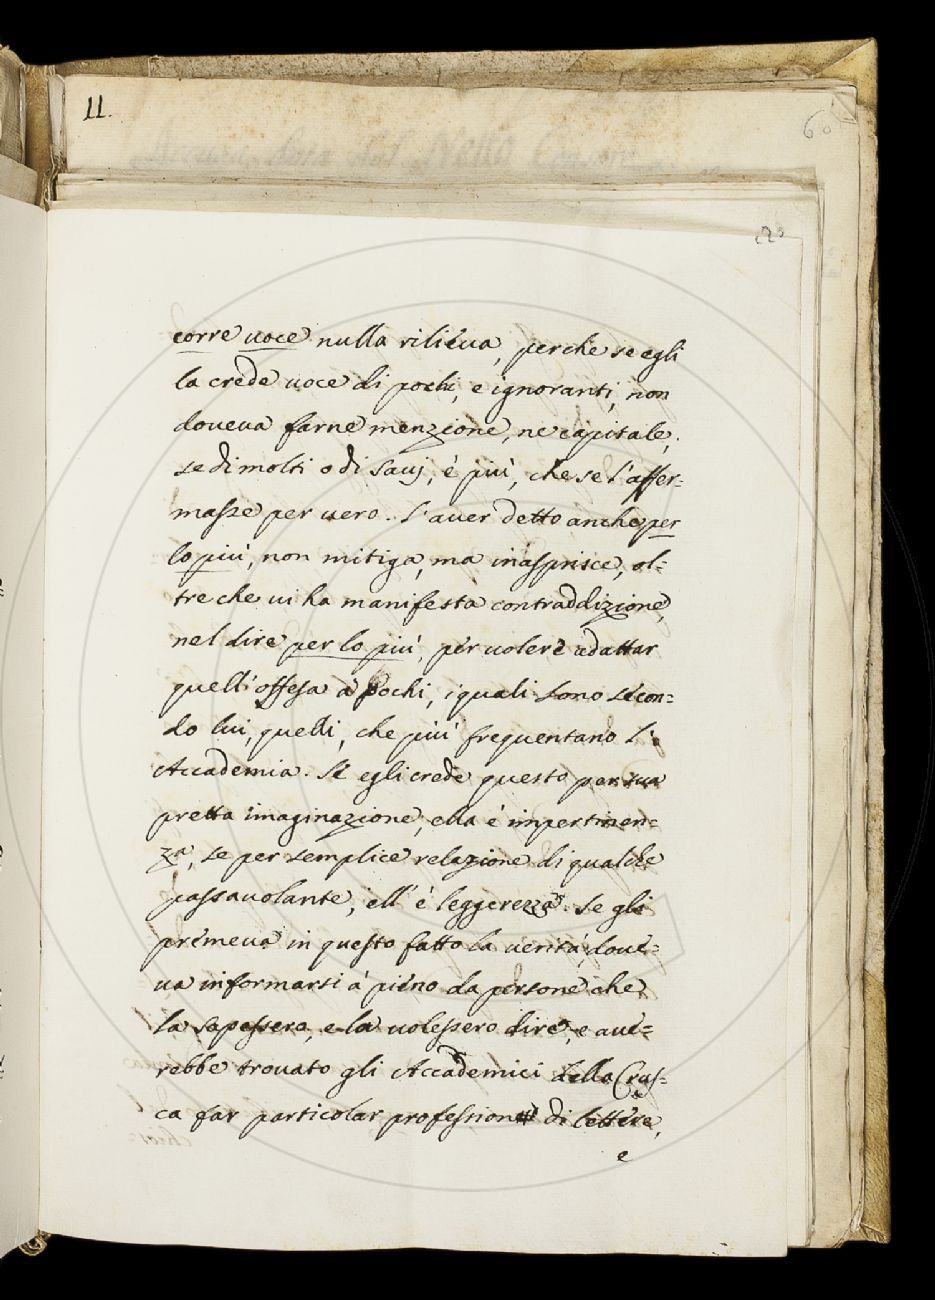 11.
60
corre uoce nulla rilieua, perche se egli
la crede uoce di pochi, e ignoranti, non
doueua farne menzione, ne capitale,
se di molti o di sauj, è più, che se l'affer=
masse per uero. L'auer detto anche per
lo più, non mitiga, ma inasprisce, ol=
tre che ui ha manifesta contraddizione,
nel dire per lo più, per uolere adattar
quell'offesa à pochi, i quali sono secon=
do lui, quelli, che più frequentano l'
Accademia. Se egli crede questo per sua
pretta imaginazione, ella è impertinen=
za, se per semplice relazione di qualche
passauolante, ell' è leggerezza. Se gli
premeua in questo fatto la uerità, doue=
ua informarsi à pieno da persone che
la sapessero, e la uolessero dire, e aue=
rebbe trouato gli Accademici della Crus=
ca far particolar professione di lettere,
e